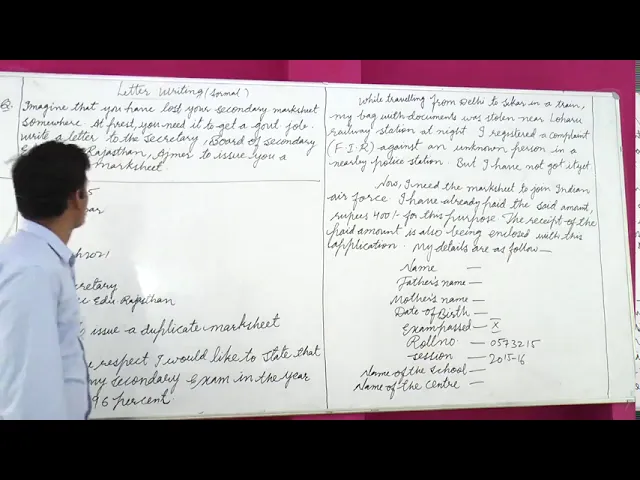 Letter Writing (formal)
Q. Imagine that you have lost your secondary marksheet
somewhere. At prest, you need it to get a govt job.
Write a letter to the Secretary, Board of secondary
Rajasthan, Ajmer to issue you a
marksheet.
5
ar
h2021
cretary
Edu Rajasthan
to issue a duplicate marksheet
respect I would like to state that
my secondary Exam in the year
96 percent.
While travelling from Delhi to Sikar in a train,
my bag with documents was stolen near Loharu
railway station at night. I registered a complaint
(F.I.R) against an unknown person in a
nearby police station. But I have not got it yet
Now, I need the marksheet to join Indian
air force. I have already paid the said amount,
rupees 400/- for this purpose. The receipt of the
paid amount is also being enclosed with this
application. My details are as follow—
Name —
Father's name —
Mother's name —
Date of Birth —
Exam passed — X
Roll no — 0573215
session — 2015-16
Name of the School —
Name of the Centre —